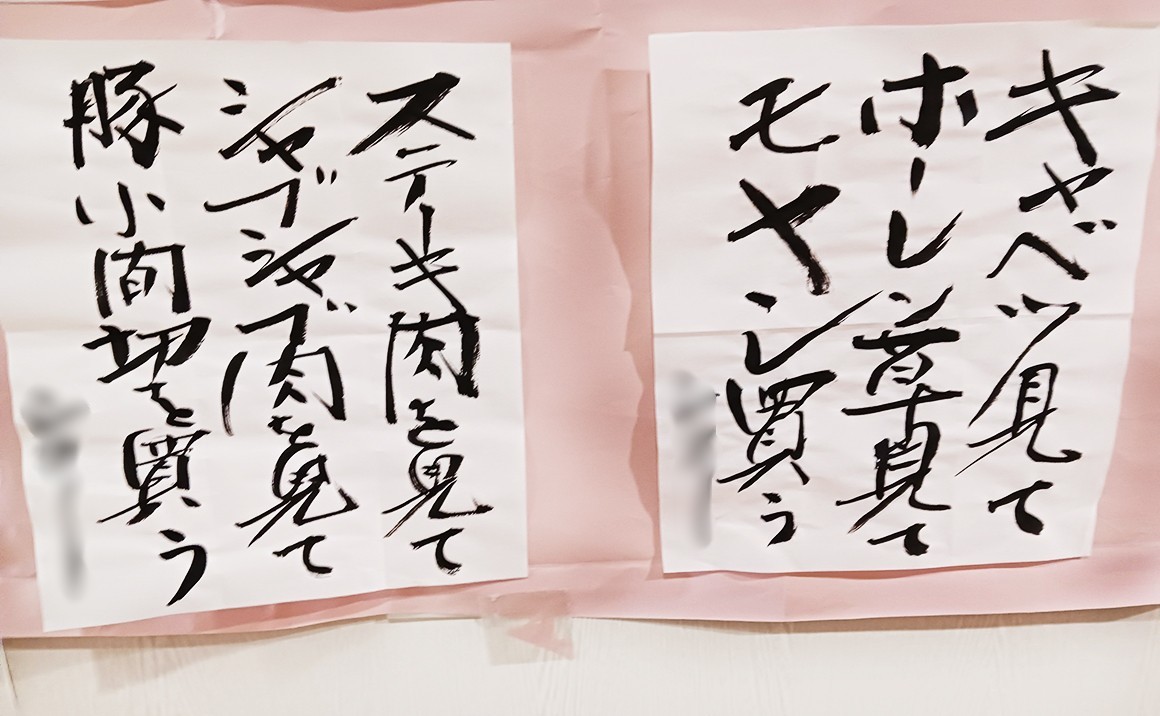 キャベツ見て
ホーレン草見て
モヤシ買う
ステーキ肉を見て
シャブシャブ肉を見て
豚小間切を買う